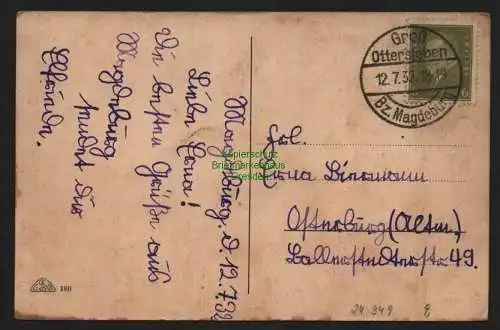 Magdeburg, d 12.7.32
Liebe Erna!
Die besten Grüße aus
Magdeburg
sendet Dir
Elfriede.
Groß
Ottersleben
12.7.32. 18-19
Bz. Magdeburg
6
Frl.
Erna Biermann
Osterburg (Altm.)
Ballerstedterstr 49.
24 349
180
Kopierschutz
Briefmarkenhaus
Dresden